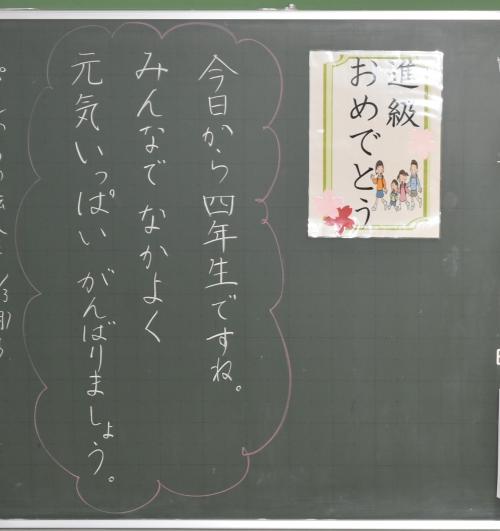 進級
おめでとう
今日から四年生ですね。
みんなでなかよく
元気いっぱいがんばりましょう。